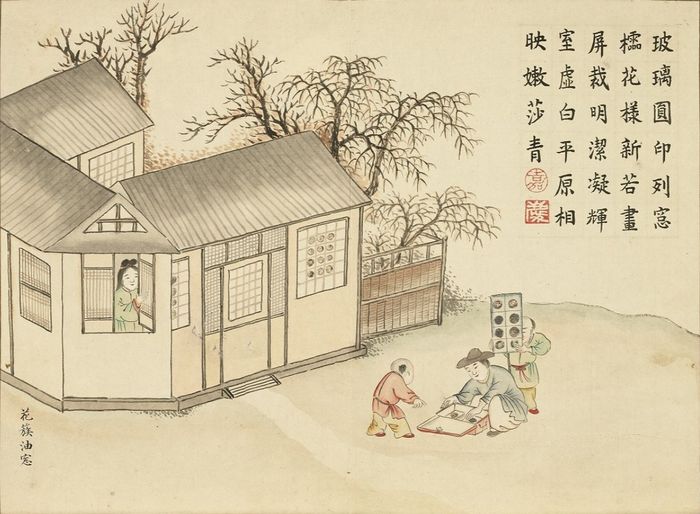 玻璃圓印列窓
檽花樣新若畫
屏裁明潔凝輝
室虛白平原相
映嫩莎青
嘉
花簱油窓